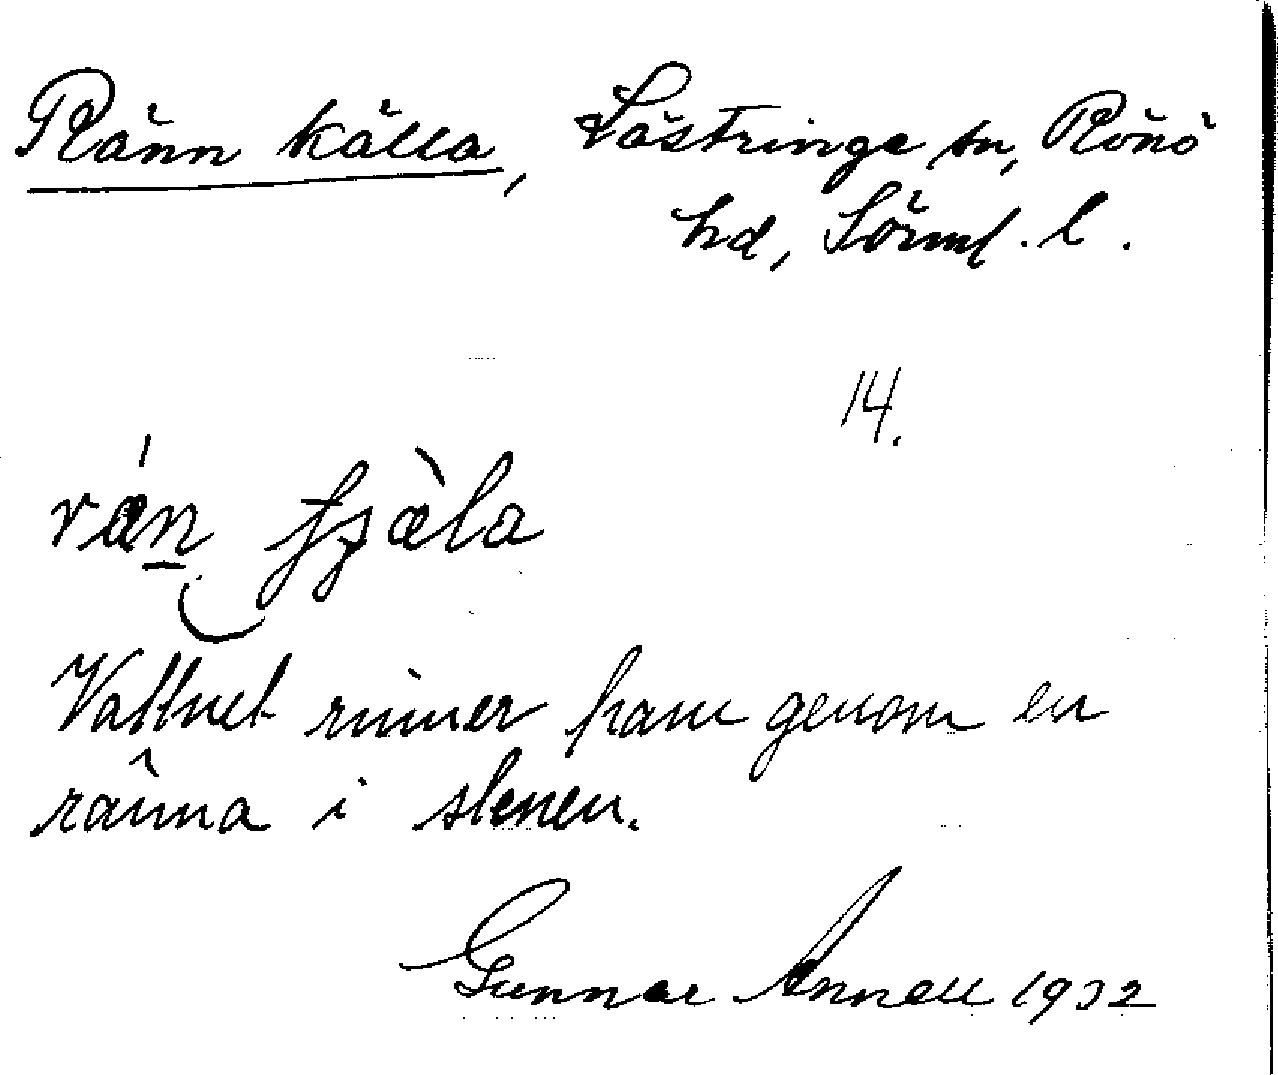 Ränn källa, Lästringe sn, Rönö
hd, Sörml. l.
14.
rǽn tjæ̀la
Vattnet rinner fram genom en
ränna i stenen.
Gunnar Annell 1932